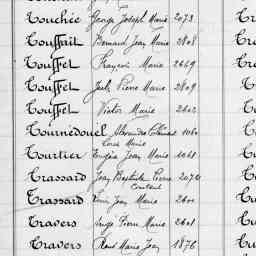 Touchée George Joseph Marie 2073
Touffait Bernard Jean Marie 2808
Touffet François Marie 2649
Touffet Jules Pierre Marie 2809
Touffet Victor Marie 2622
Tournedouel Alexandre 1060
Louis Marie
Tourtier Eugène Jean Marie 1061
Trassard Jean Baptiste Pierre 2076
Constant
Trassard Louis Jean Marie 2600
Travers Ange Pierre Marie 2601
Travers Marie Jean 1876